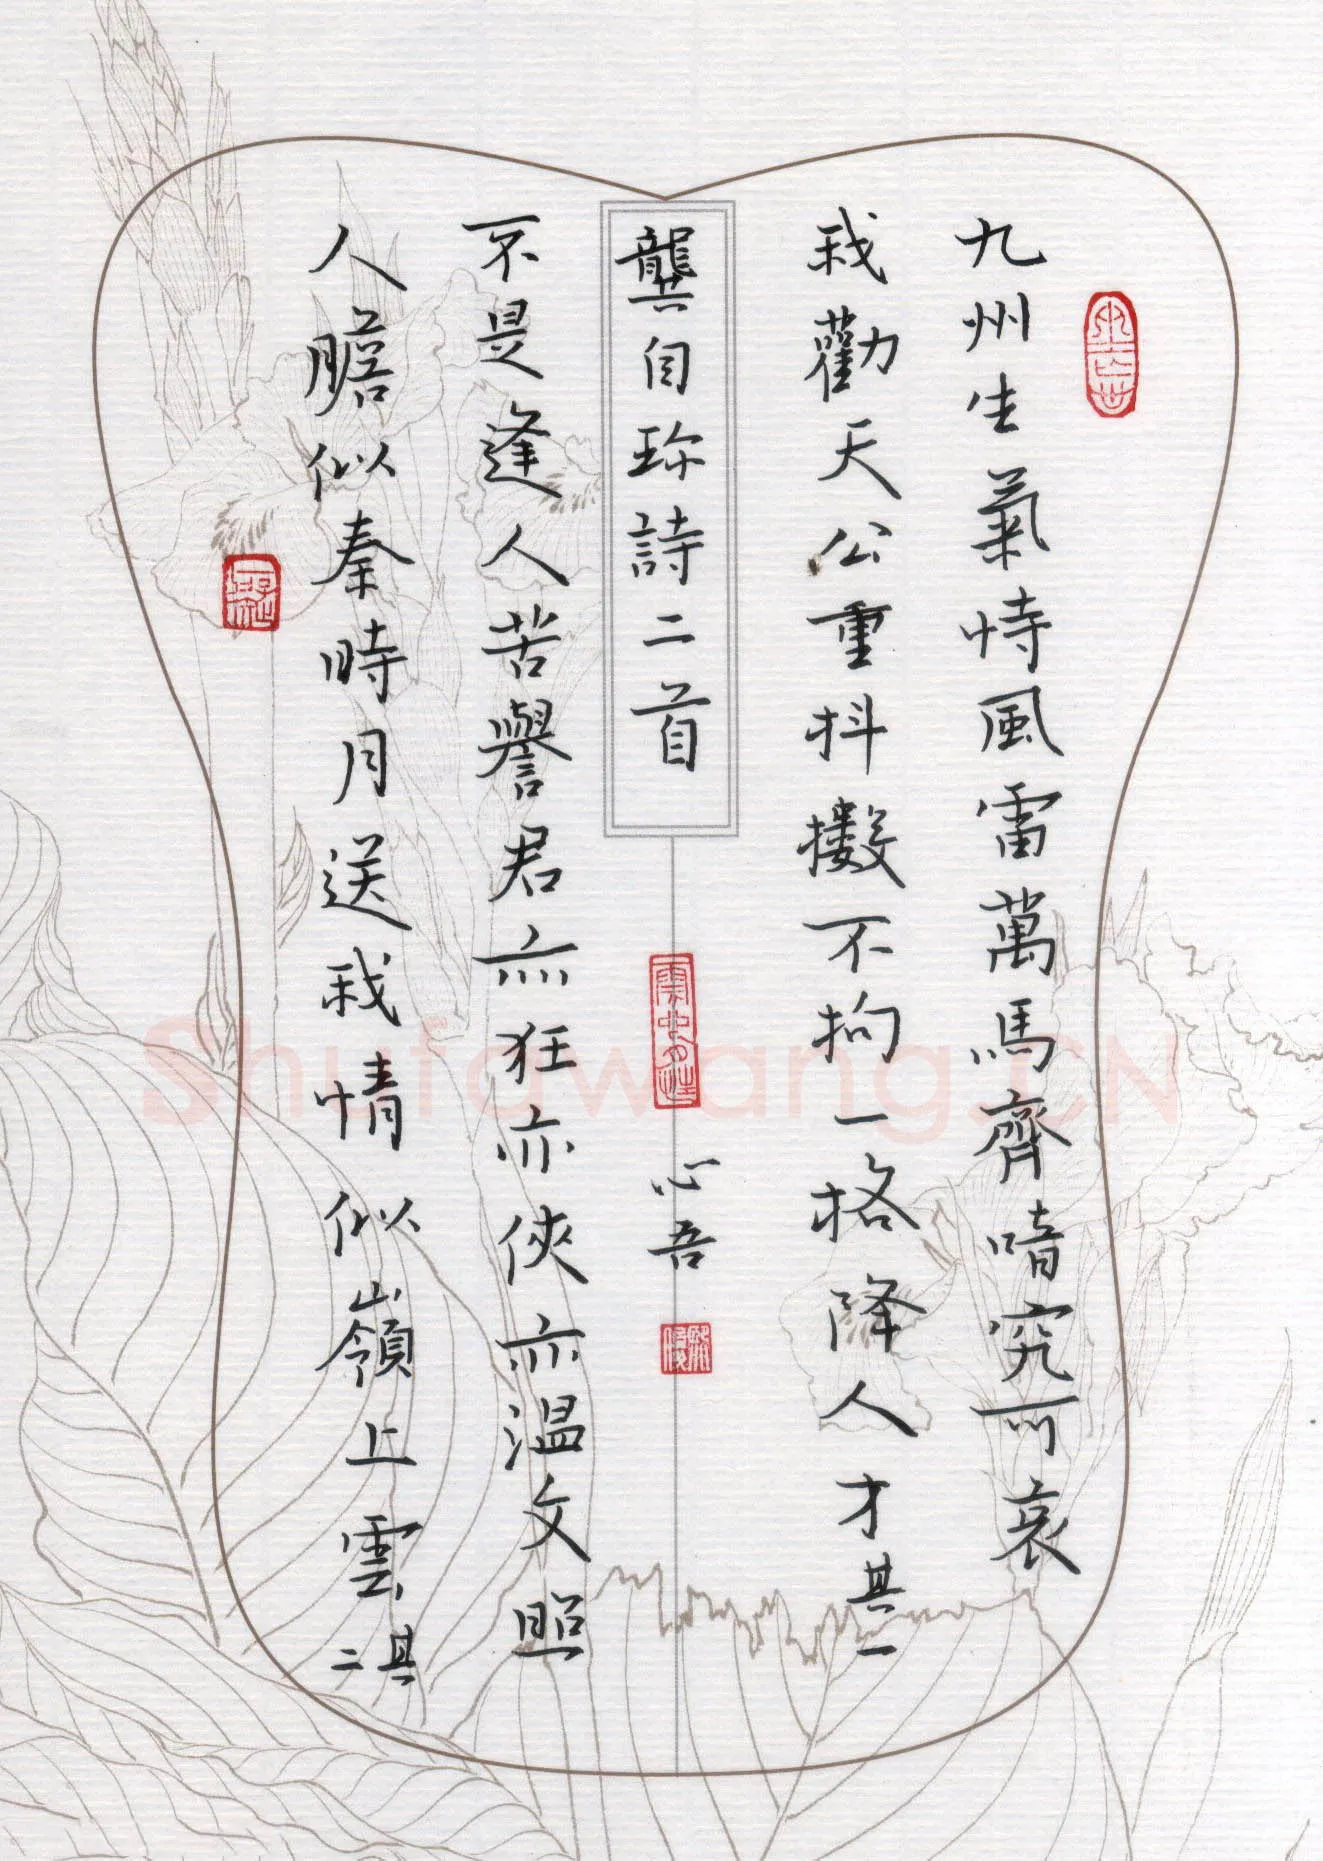 九州生氣恃風雷萬馬齊喑究可哀
我勸天公重抖擻不拘一格降人才其一
龔自珍詩二首
心吾
不是逢人苦譽君亦狂亦俠亦溫文照
人膽似秦時月送我情似嶺上雲其二
Shufawang.CN